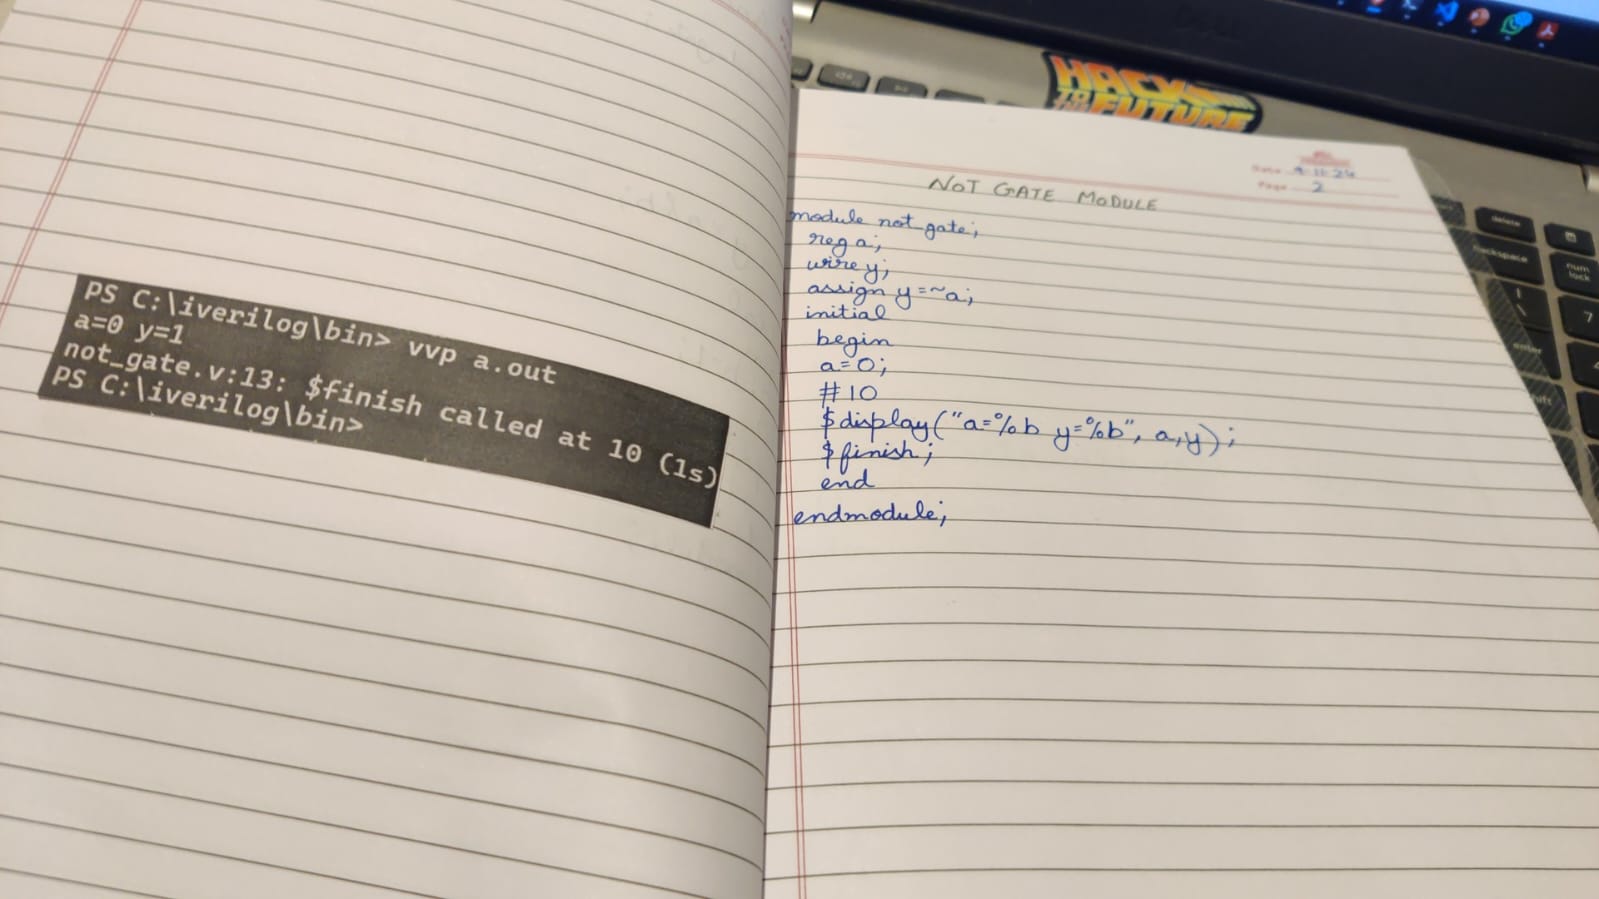 PS C:\iverilog\bin> vvp a.out
a=0 y=1
not_gate.v:13: $finish called at 10 (1s)
PS C:\iverilog\bin>
HACK
TO THE
FUTURE
Date 9-11-24
Page 2
NOT GATE MODULE
module not_gate;
reg a;
wire y;
assign y=~a;
initial
begin
a=0;
#10
$display("a=%b y=%b", a,y);
$finish;
end
endmodule;
delete
backspace
num
lock
enter
7